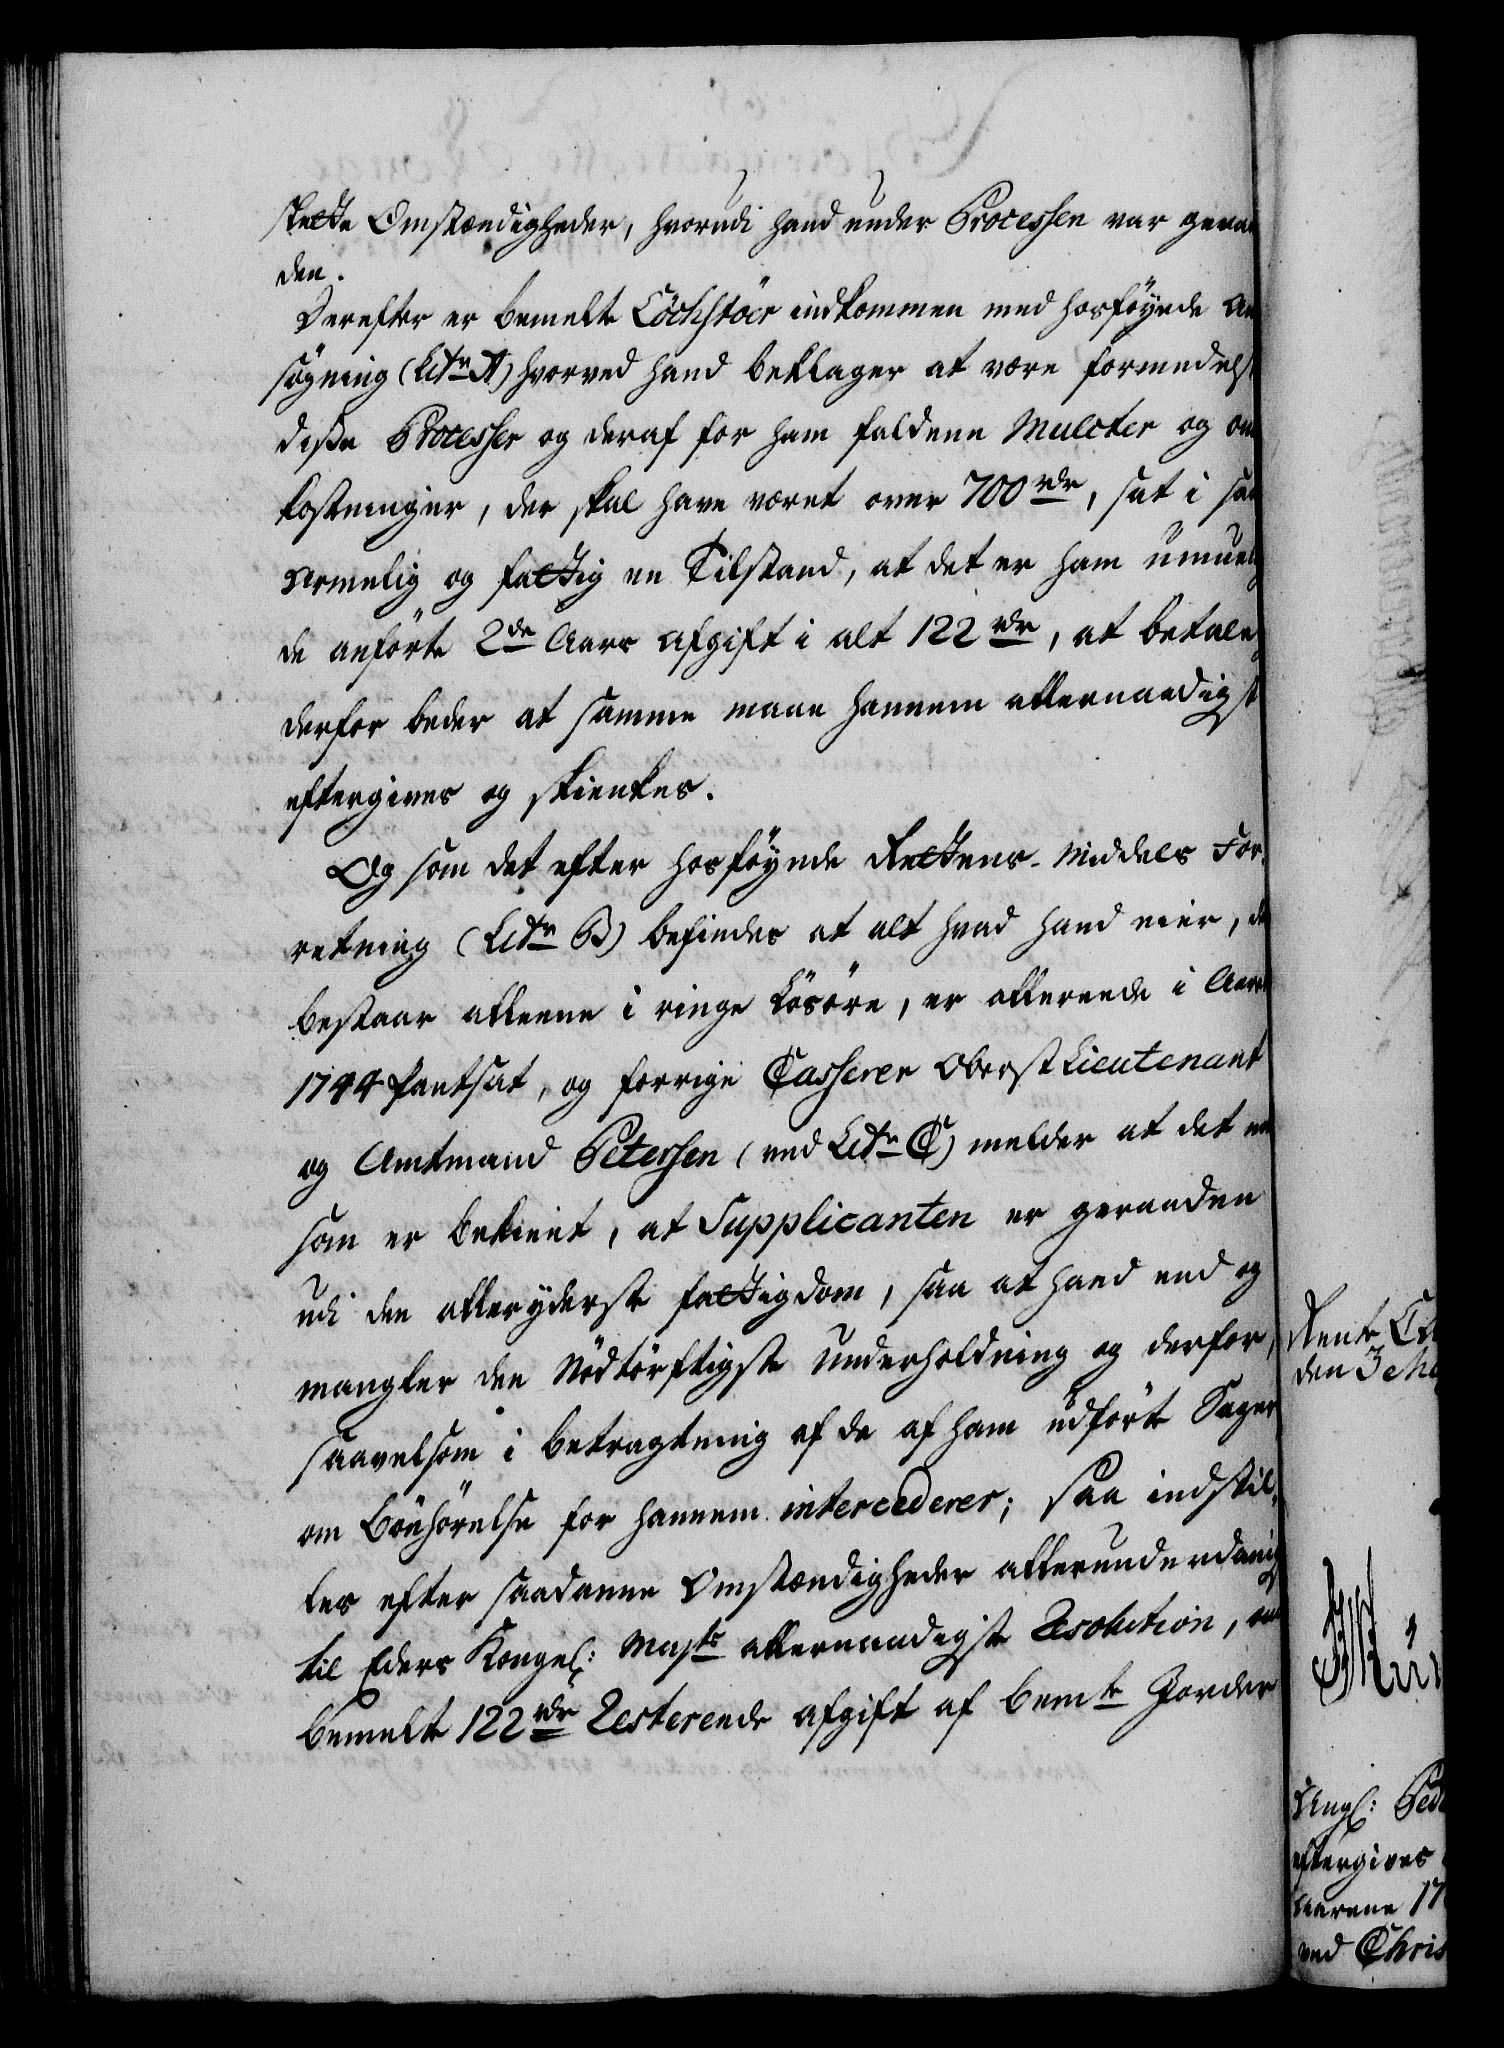 slette Omstændigheder, hvorudi hand under Processen var geraa
den.
Derefter er bemelte Cöchstöer indkommen med hosföyede an
søgning (Litr A) hvorved hand beklager at være formedelst
diße Processer og deraf for ham faldene Mulcter og om
kostninger, der skal have været over 700 rdr, sat i saa
armelig og fattig en Tilstand, at det er ham umuel
de anförte 2de Aars afgift i alt 122 rdr, at betale,
derfor beder at samme maae hannem allernaadigst
eftergives og skienkes.
Og som det efter hosföyede Rettens-Middels For,
retning (Litr B) befindes at alt hvad hand eier, der
bestaar alleene i ringe Lösöre, er allereede i Aaret
1744 pantsat, og forrige Casserer Oberst Lieutenant
og Amtmand Petersen (ved Litr C) melder at det nok
som er bekient, at Supplicanten er geraaden
udi den alleryderste fattigdom, saa at hand end og
mangler den Nödtörftigste Underholdning og derfor,
saavelsom i betragtning af de af ham udförte Sager
om Bönhörelse for hannem intercederer; Saa indstil,
les efter saadanne Omstændigheder allerunderdanigst
til Eders Kongel: Mayts allernaadigste Resolution, om
bemelte 122 rdr Resterende afgift af bemte Gorder
Rente
den 3
Ang:
eftergives
Aarene 17
ved Chris